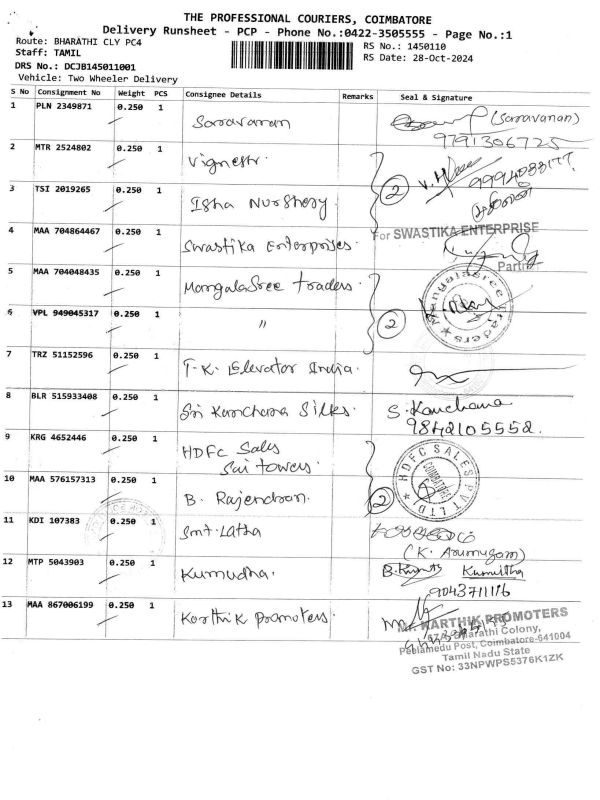 THE PROFESSIONAL COURIERS, COIMBATORE
Delivery Runsheet - PCP - Phone No.:0422-3505555 - Page No.:1
Route: BHARATHI CLY PC4
RS No.: 1450110
Staff: TAMIL
RS Date: 28-Oct-2024
DRS No.: DCJB145011001
Vehicle: Two Wheeler Delivery
S No Consignment No Weight PCS Consignee Details Remarks Seal & Signature
1 PLN 2349871 0.250 1 Saravanan (Saravanan)
9791306725
2 MTR 2524802 0.250 1 Vignesh.
3 TSI 2019265 0.250 1 Isha Nurshery. 2
4 MAA 704864467 0.250 1 Swastika Enterprises. For SWASTIKA ENTERPRISE
Partner
5 MAA 704048435 0.250 1 MangalaSree traders. Mangalasree Traders
6 VPL 949045317 0.250 1 〃 2
7 TRZ 51152596 0.250 1 T.K. Elevator India.
8 BLR 515933408 0.250 1 Sri Kanchana Silks. S. Kanchana
9842105552.
9 KRG 4652446 0.250 1 HDFC Sales
Sai towers. HDFC SALES PVT LTD
COIMBATORE
10 MAA 576157313 0.250 1 B. Rajendran. 2
11 KDI 107383 0.250 1 Smt. Latha
(K. Arumugam)
12 MTP 5043903 0.250 1 Kumudha. Kumudha
9043711116
13 MAA 867006199 0.250 1 Karthik promoters.
KARTHIK PROMOTERS
Bharathi Colony,
Peelamedu Post, Coimbatore-641004
Tamil Nadu State
GST No: 33NPWPS5376K1ZK